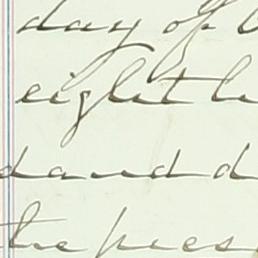 day of
eight h
dand d
the pres